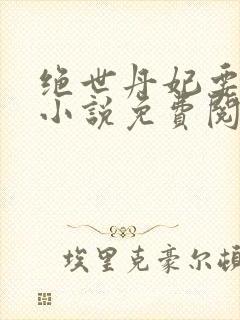 绝世丹妃要
小說免費閱
埃里克豪尔頓